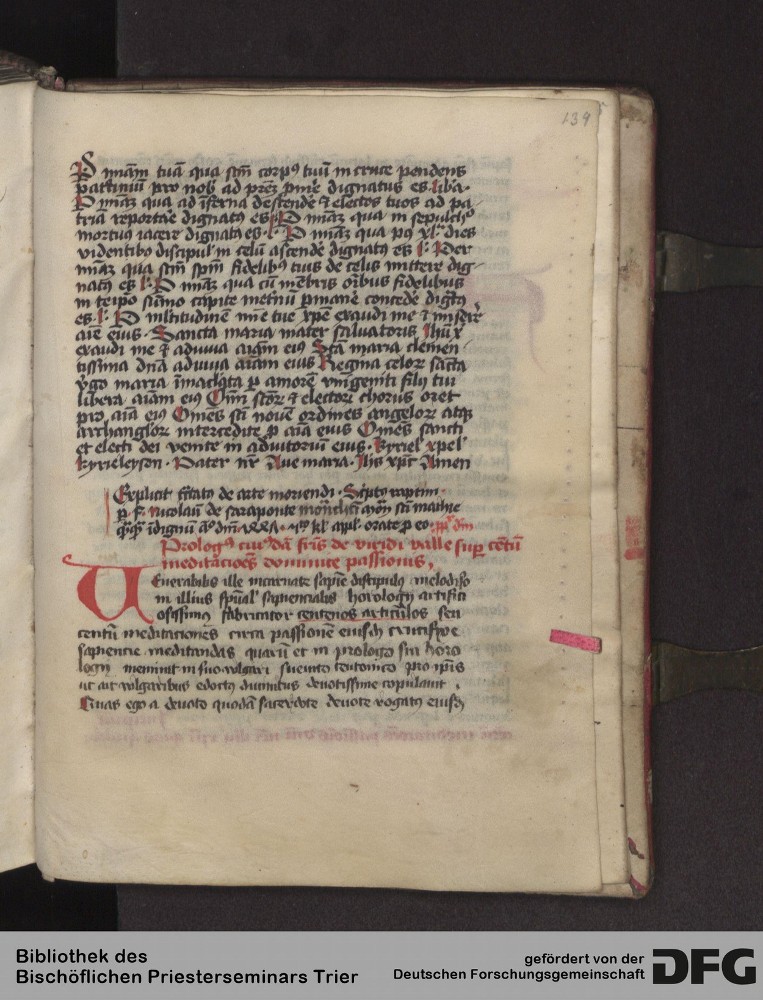 139
P nimiam tuā qua scm̄ corpꝰ tuū in cruce pendens
pati p̄ro nob̄ ad dignatus es liba·
P nimiaʒ qua ad īferna descende ⁊ electos tuos ad pa
tria reportae dignatꝰ es l· P nimiaʒ qua in sepulchꝰ
mortuꝰ iacere dignatꝰ es· l· P nimiaʒ qua pꝰ xlͣ dies
videntibꝰ discipul̄ in celū ascende dignatꝰ es l· Per
nimiaʒ qua scm̄ spm̄ fidelibꝰ tuis de celis mittere dig
natꝰ es l· P nimiaʒ qua cū mēbris oībus fidelibus
in teipo sūmo capite p̄mane concede dig̅tꝰ
es· l· P mltitudinē mīe tue xpē exaudi me ⁊ miserē
aīe eius· Sancta maria mater saluatoris Ihū x̄
exaudi me ⁊ adiuua aīam eiꝰ Scā maria clemen
tissima dnā adiuua aīam eius Regina celoꝝ sācta
v̄go maria īmaclata p amorē vnigeniti filij tui
libera aīam eiꝰ Om̄ scōꝝ ⁊ electoꝝ chorus oret
pro aīa eiꝰ Om̄es scī nouē ordines angeloꝝ atqꝫ
archangloꝝ intercedite p̄ aīa eius Om̄es sancti
et electi dei venite in adiutoriū eius· kyriel̄ xpel̄
kyrieleyson· Pater nr̄ Aue maria· Ihs xp̄c Amen
Explicit tractatꝰ de arte moriendi· Sciptꝰ raptim
p̄ f. Nicolaū de saraponte monchū mōn scī mathie
īdignū aº dm̄ orate p̄ eo· ppt̄ dm̄
Prologꝰ cuiꝰdā fr̄is de viridi valle sup̄ centū
meditacioēs dominice passionis,
Uenerabilis ille incarnate sapīe discipulꝰ melodiso
in illius sp̄ual̄ sapiencialis horologij artifici
osissimꝰ fabricator centenos articulos seu
centū meditaciones circa passionē eiusdꝫ crucifixe
sapiencie meditandas quarū et in prologo sui horo
logij meminit in suo vulgari sueuico teutonico pro ipīs
ut ait vulgaribus edoctꝰ diuinitus deuotissime copulauit.
Quas ego a deuoto quodā sacerdote deuote rogatꝰ eiusdꝫ
Bibliothek des
Bischöflichen Priesterseminars Trier
gefördert von der
Deutschen Forschungsgemeinschaft
DFG